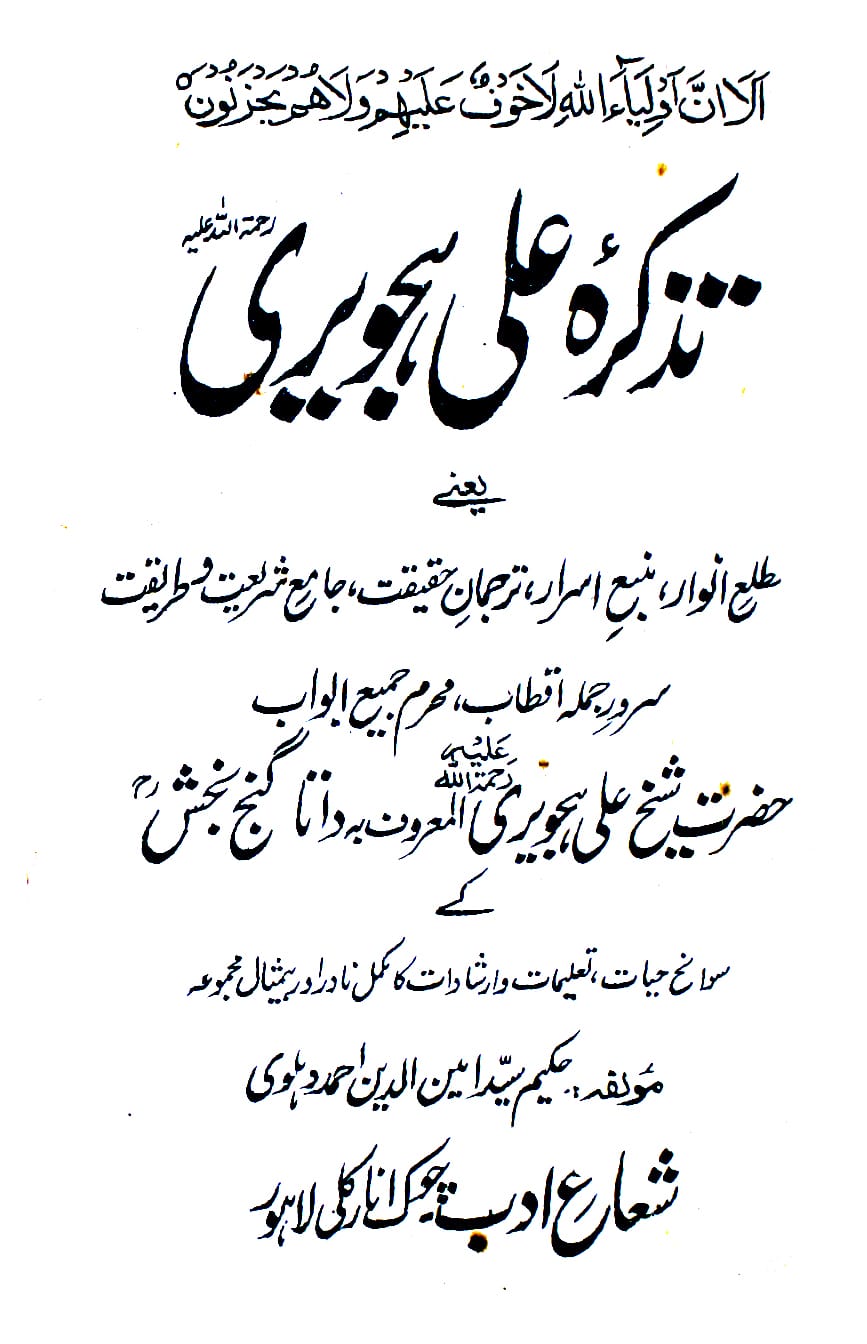 اَلَا اِنَّ اَوْلِيَآءَ اللّٰهِ لَاخَوْفٌ عَلَيْهِمْ وَلَاهُمْ يَحْزَنُوْنَ
تذکرۂ علی ہجویری رحمۃ اللہ علیہ
یعنے
مطلعِ انوار، منبعِ اسرار، ترجمانِ حقیقت، جامعِ شریعت و طریقت
سرورِ جملہ اقطاب، محرم جمیع ابواب
حضرت شیخ علی ہجویری رحمۃ اللہ علیہ المعروف بہ داتا گنج بخش رح
کے
سوانح حیات، تعلیمات و ارشادات کا مکمل نادر اور بیمثال مجموعہ
مؤلفہ: حکیم سیّد امین الدین احمد دہلوی
شعاعِ ادب چوک انار کلی لاہور